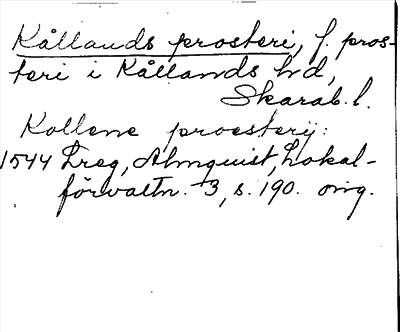 Kållands prosteri, f. pros-
teri i Kållands hd,
Skarab. l.
Kollene proesterij:
1544 Lreg, Almquist, Lokal-
förvaltn. 3, s. 190. orig.